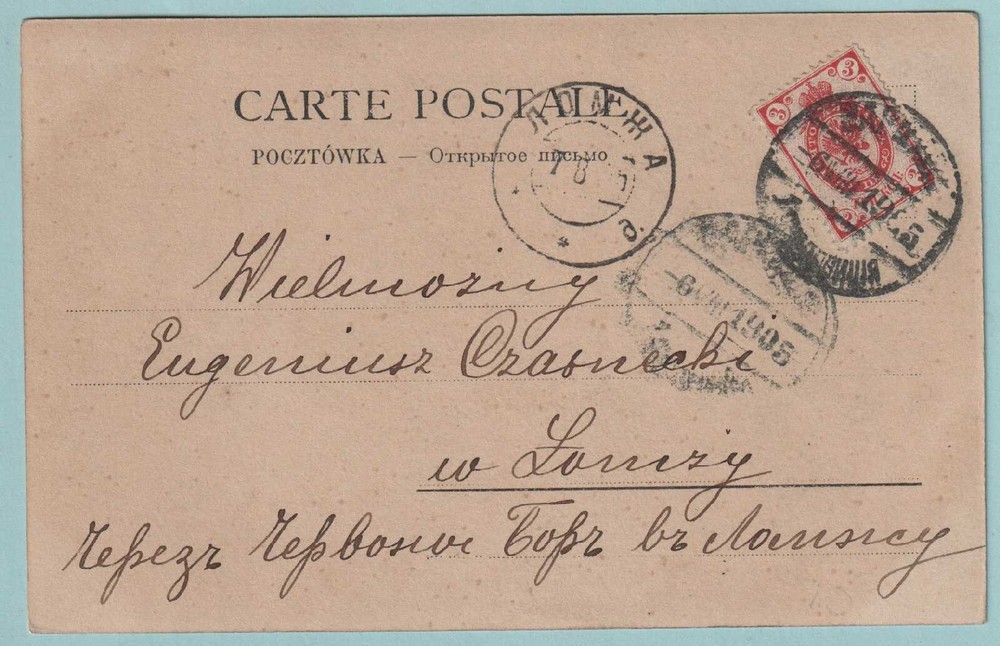 CARTE POSTALE
POCZTÓWKA — Открытое письмо
ЛОМЖА
7 8
3 3
3 3
-6 VIII 1905
Wielmożny
Eugeniusz Czasnecki
w Łomży
Черезъ Червоный Боръ въ Ломжу